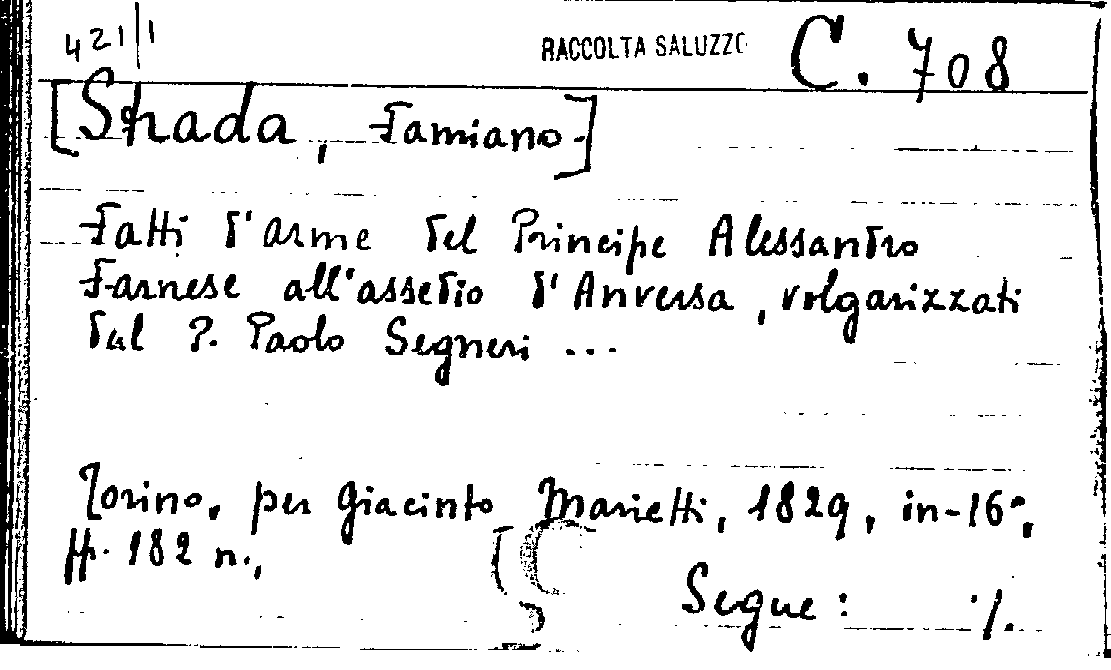 421/1
RACCOLTA SALUZZO
C. 708
[Strada, Famiano]
Fatti d'arme del Principe Alessandro
Farnese all'assedio d'Anversa, volgarizzati
dal P. Paolo Segneri ...
Torino, per Giacinto Marietti, 1829, in-16°,
pp. 182 n.,
Segue: ./.